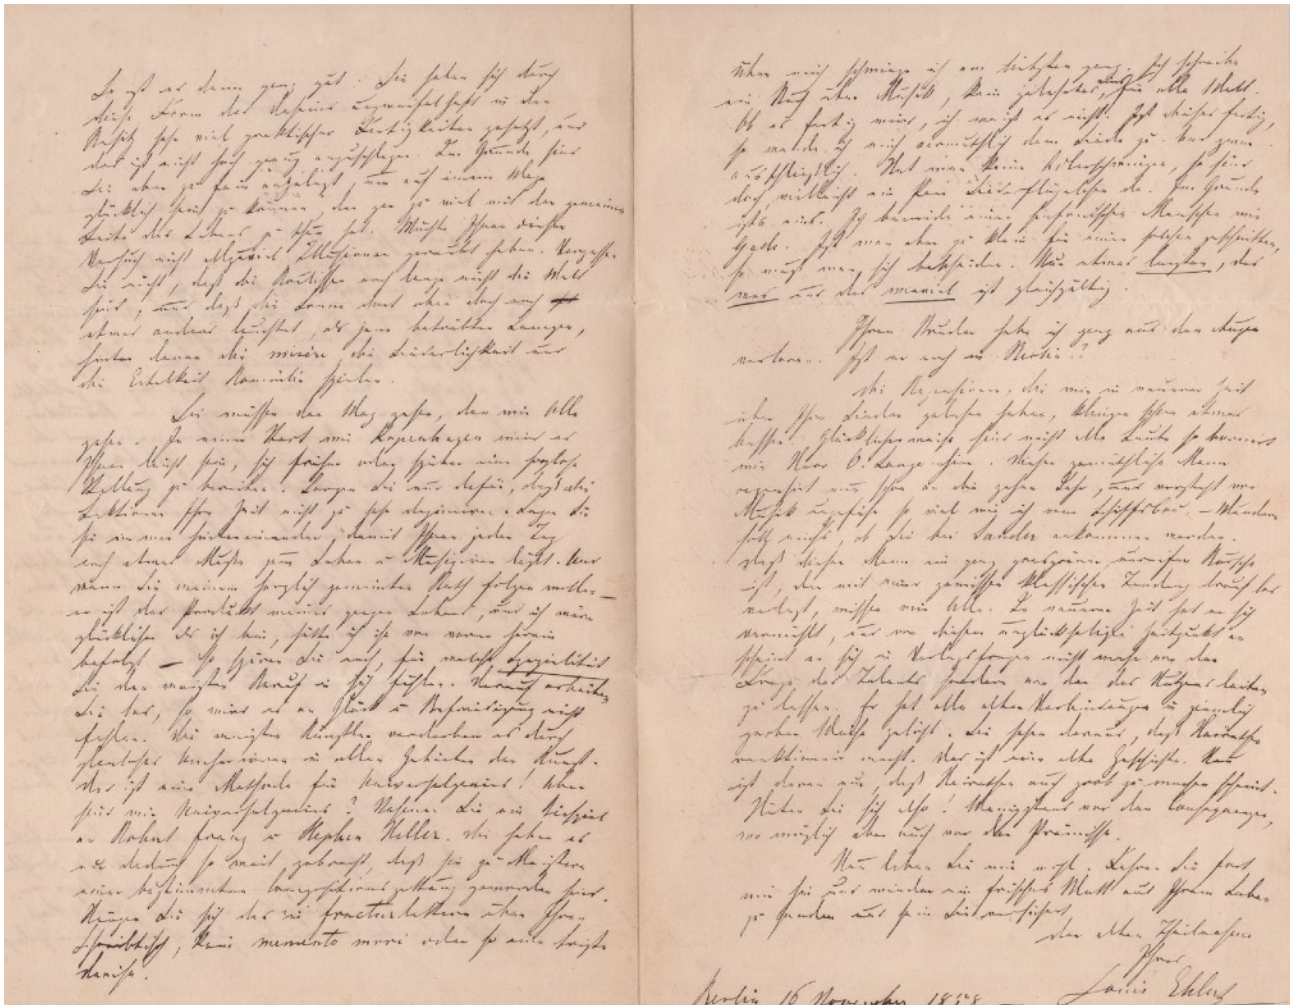 So ist es denn ganz gut. Sie haben sich durch
diese Form des Daseins unzweifelhaft in den
Besitz sehr viel praktischer Fertigkeiten gesetzt, und
das ist nicht hoch genug anzuschlagen. Im Grunde sind
Sie aber zu fein angelegt, um auf einem Wege
glücklich sein zu können, der gar zu viel mit der gemeinen
Seite des Lebens zu thun hat. Möchte Ihnen dieser
Versuch nicht allzuviel Illusionen geraubt haben. Vergessen
Sie nicht, daß die Koulissen noch lange nicht die Welt
sind, und daß die Sonne dort oben doch noch
etwas anders leuchtet, als jene betrübten Lampen,
hinter denen die misère, die Liederlichkeit und
die Eitelkeit Komödie spielen.
Sie müssen den Weg gehen, den wir Alle
gehen. In einem Ort wie Kopenhagen wird es
Ihnen leicht sein, sich früher oder später eine sorglose
Stellung zu bereiten. Sorgen Sie nur dafür, daß die
Lektionen Ihre Zeit nicht zu sehr Legen Sie
sie immer hintereinander, damit Ihnen jeder Tag
noch etwas Muße zum Leben u Musiziren läßt. Und
wenn Sie meinem herzlich gemeinten Rath folgen wollen –
er ist das Produkt meines ganzen Lebens, und ich wäre
glücklicher als ich bin, hätte ich ihn von vorne herein
befolgt – so spüren Sie nach, für welche Spezialität
Sie den meisten Beruf in sich fühlen. Darauf arbeiten
Sie los, so wird es an Glück u Befriedigung nicht
fehlen. Die meisten Künstler verderben es durch
planloses Umherirren in allen Gebieten der Kunst.
Das ist eine Methode für Universalgenies! Aber
sind wir Universalgenies? Nehmen Sie ein Beispiel
an Robert Franz u Stephen Heller. Die haben es
nur dadurch so weit gebracht, daß sie zu Meistern
einer bestimmten Compositionsgattung geworden sind.
Hängen Sie sich das in Fracturlettern über Ihren
Schreibtisch, kein memento mori oder so eine triste
Devise.
Über mich schweige ich am liebsten ganz. Ich schreibe
ein Buch über Musik, kein gelehrtes, eins für alle Welt.
Ob es fertig wird, ich weiß es nicht. Ist dieses fertig,
so wende ich mich vermuthlich dem Liede zu. Und zwar
ausschließlich. Hat man keine Adlerschwingen, so sind
doch vielleicht ein Paar Liederflügelchen da. Im Grunde
ists eins. Ich beneide einen sinfonischen Menschen wie
Gade. Ist man aber zu klein für einen solchen geschnitten,
so muß man sich bescheiden. Nur etwas leisten, das
was und das wieviel ist gleichgültig.
Ihren Bruder habe ich ganz aus den Augen
verloren. Ist er noch in Berlin?
Die Rezensionen, die wir in neuerer Zeit
über Ihre Lieder gelesen haben, klingen schon etwas
besser. Glücklicherweise sind nicht alle Leute so bornirt
wie Herr O. Lange hier. Dieser gemüthliche Mann
rezensirt nun schon an die zehn Jahr, und versteht von
Musik ungefähr so viel wie ich vom Schiffsbau. – Wundern
sollt michs, ob Sie bei Sander ankommen werden.
Daß dieser Mann ein ganz grasgrüner unreifer Bursche
ist, der mit einer gewissen klassischen Tendenz drauf los
verlegt, wissen wir Alle. In neuerer Zeit hat er sich
vermählt, und von diesem unglückseligen Zeitpunkt an
scheint er sich in Verlagsfragen nicht mehr von der
Frage des Talents sondern von der des Nutzens leiten
zu lassen. Er hat alle alten Verbindungen in ziemlich
grober Weise gelöst. Sie sehen daraus, daß Heirathen
reaktionair macht. Das ist eine alte Geschichte. Neu
ist daran nur, daß Heirathen auch grob zu machen scheint.
Hüten Sie sich also! Wenigstens vor den Consequenzen,
wo möglich aber auch vor der Prämisse.
Nun leben Sie mir wohl. Fahren Sie fort
mir hin und wieder ein frisches Blatt aus Ihrem Leben
zu senden und sein Sie versichert
der alten Theilnahme
Ihres
Louis Ehlert
Berlin 16 November 1858